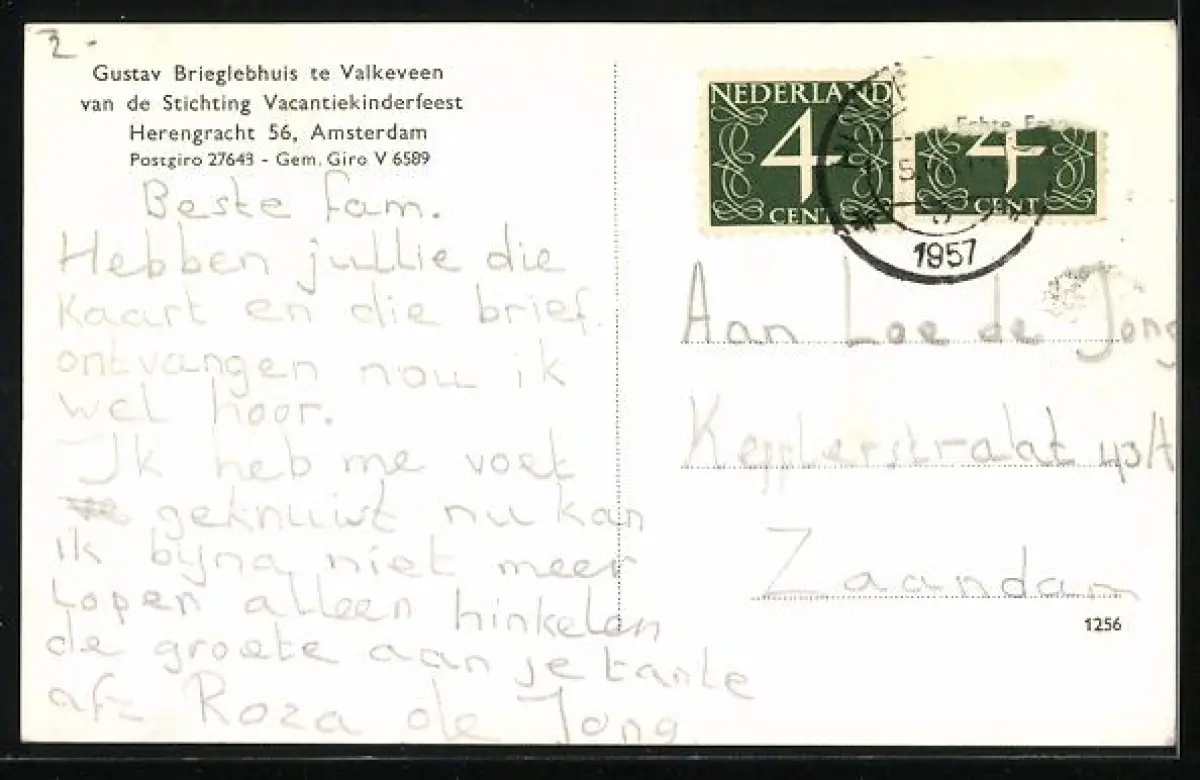 2.
Gustav Brieglebhuis te Valkeveen
van de Stichting Vacantiekinderfeest
Herengracht 56, Amsterdam
Postgiro 27643 - Gem. Giro V 6589
Beste fam.
Hebben jullie die
kaart en die brief
ontvangen nou ik
wel hoor.
Ik heb me voet
geknuist nu kan
ik bijna niet meer
lopen alleen hinkelen
de groete aan je tante
afz Roza de Jong
NEDERLAND
4
CENT
Echte
4
CENT
1957
Aan Loe de Jong
Kepplerstraat 43A
Zaandam
1256